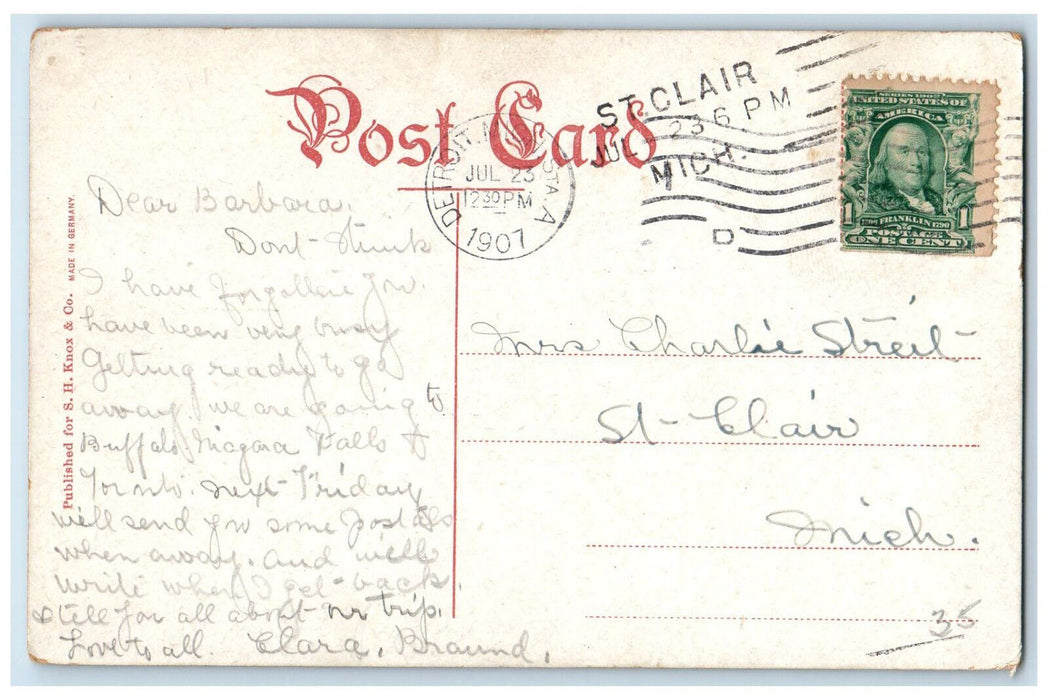 Post Card
ST. CLAIR
JUL 23 6 PM
MICH.
D
DETROIT, MICH. STA. A
JUL 23
12 30 PM
1907
SERIES 1902
UNITED STATES OF
AMERICA
1 1
1706 FRANKLIN 1790
POSTAGE
ONE CENT
Published for S. H. Knox & Co. MADE IN GERMANY.
Dear Barbara,
Dont think
I have forgotten you.
have been very busy
Getting ready to go
away. we are going to
Buffalo Niagara Falls &
Toronto. next Friday
will send you some postals
when away. and will
write when I get back.
& tell you all about our trip.
Love to all. Clara. Braund.
Mrs Charlie Streit
St Clair
Mich.
35